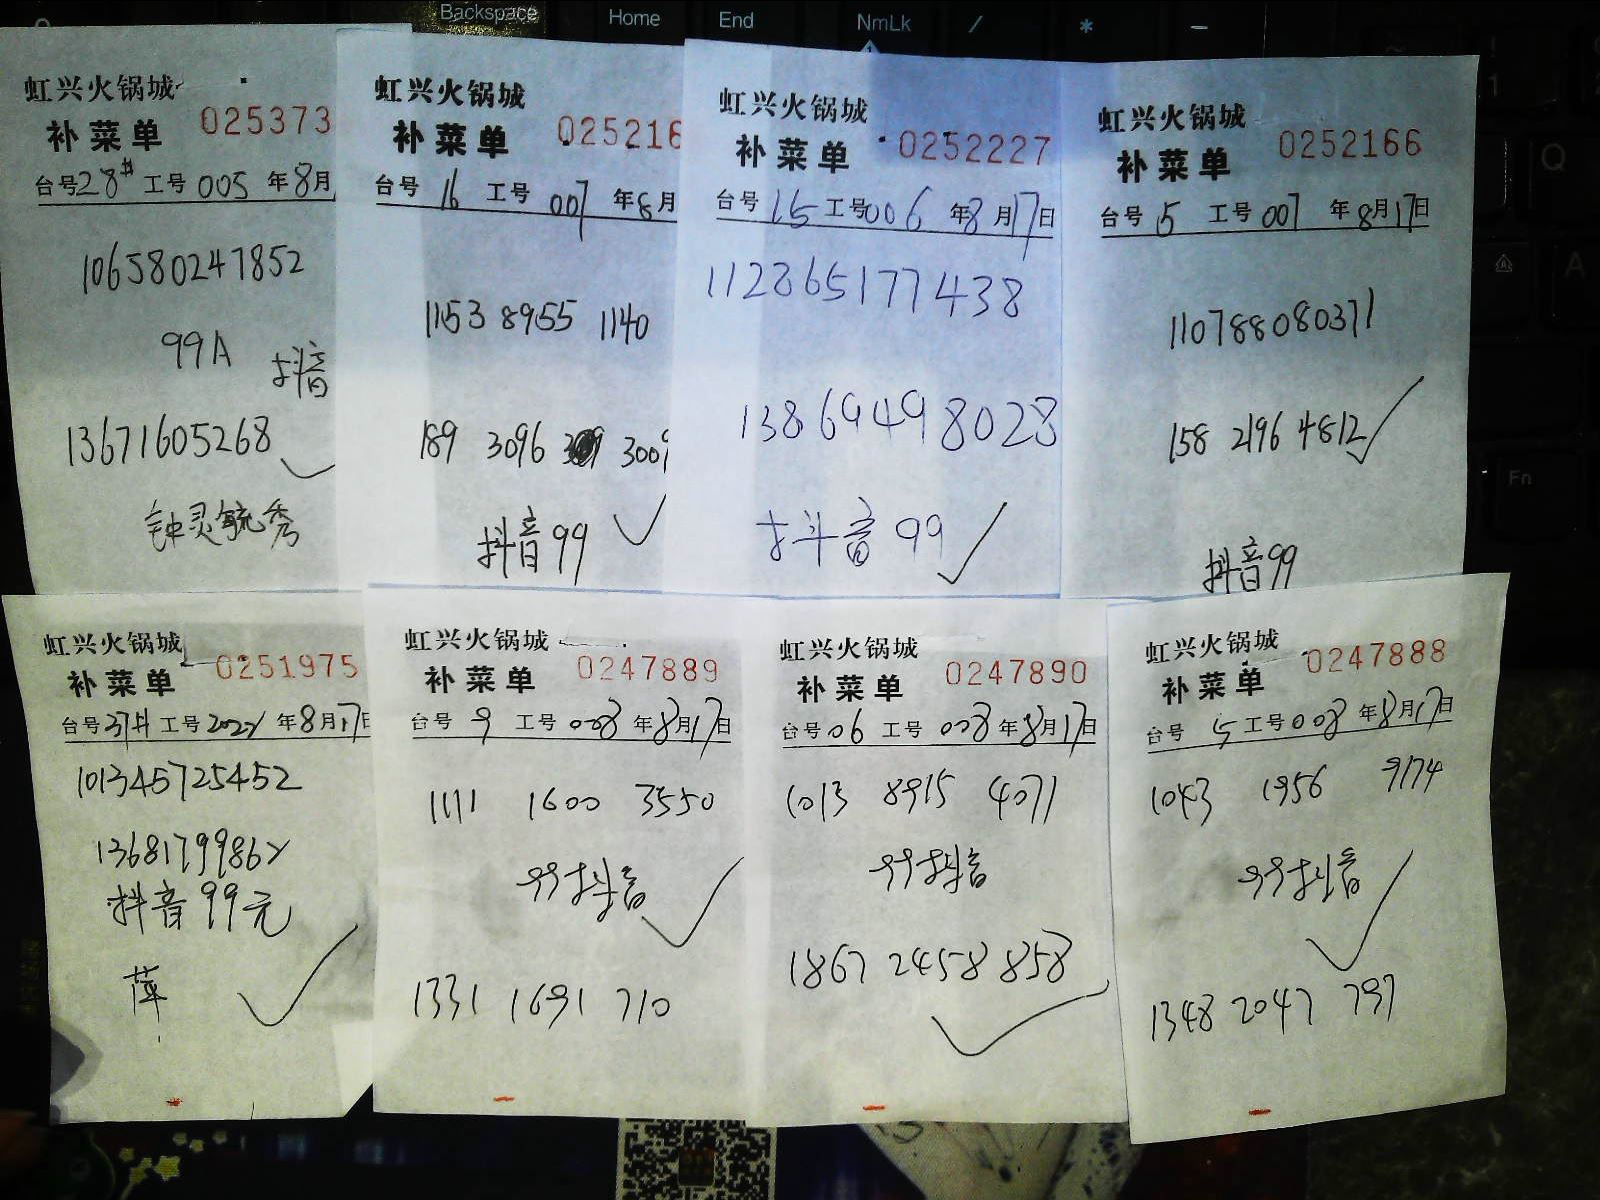 Backspace
Home
End
NmLk
/
*
-
虹兴火锅城
补菜单 025373
台号28# 工号005 年8月
106580247852
99A
抖音
13671605268
钟灵毓秀
虹兴火锅城
补菜单 025216
台号 16 工号 007 年8月
1153 8955 1140
189 3096 3009
抖音99
虹兴火锅城
补菜单 0252227
台号 15 工号006 年8月17日
112865177438
13869498028
抖音99
虹兴火锅城
补菜单 0252166
台号 5 工号 007 年8月17日
110788080371
158 2196 4812
抖音99
虹兴火锅城
补菜单 0251975
台号37# 工号2022 年8月17日
101345725452
13681799862
抖音99元
萍
虹兴火锅城
补菜单 0247889
台号 9 工号 008 年8月17日
1111 1600 3550
99抖音
1331 1691 710
虹兴火锅城
补菜单 0247890
台号06 工号 008 年8月17日
1013 8915 4071
99抖音
1867 2458 858
虹兴火锅城
补菜单 0247888
台号 5 工号008 年8月17日
1043 1956 9174
99抖音
1348 2047 797
Q
A
Fn